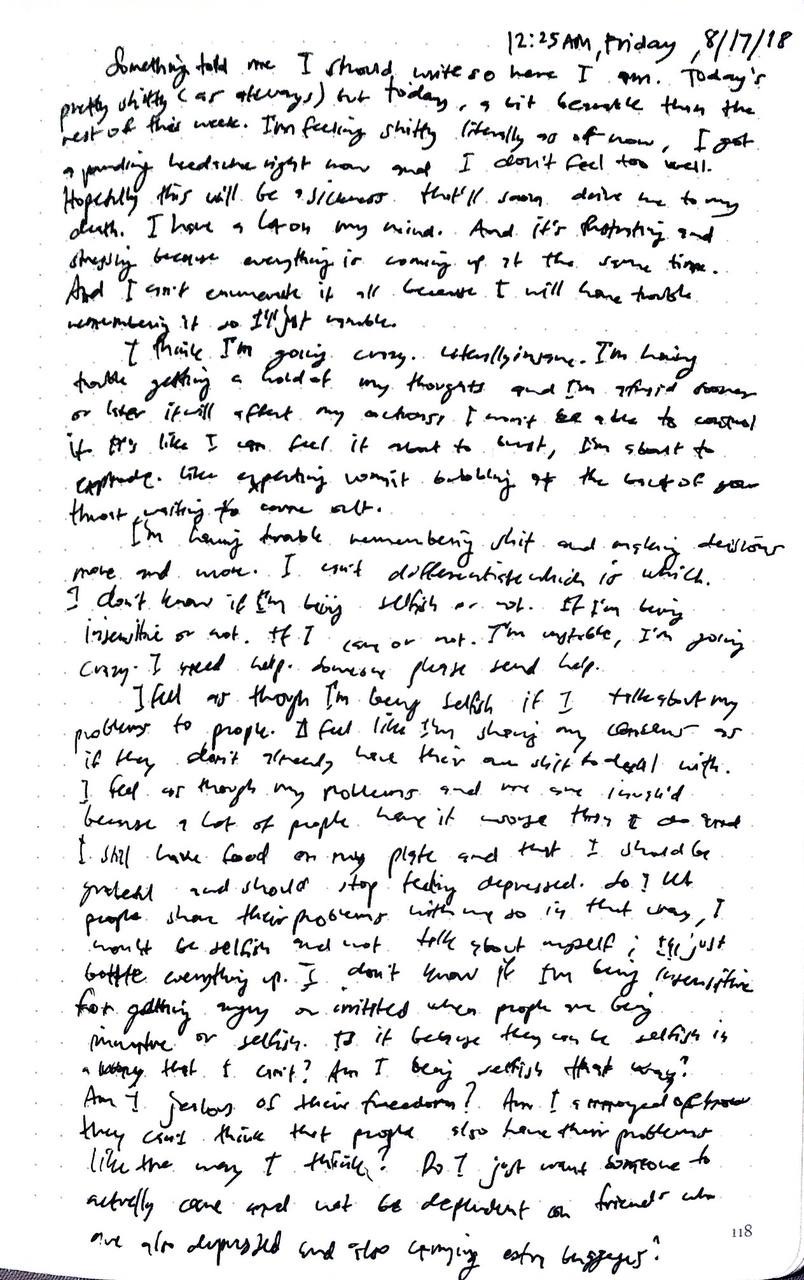 12:25AM, Friday, 8/17/18
Something told me I should write so here I am. Today's
pretty shitty (as always) but today, a bit bearable than the
rest of this week. I'm feeling shitty literally as of now, I got
a pounding headache right now and I don't feel too well.
Hopefully this will be a sickness that'll soon drive me to my
death. I have a lot on my mind. And it's frustrating and
stressing because everything is coming up at the same time.
And I can't enumerate it all because I will have trouble
remembering it so I'll just ramble.
I think I'm going crazy. Literally insane. I'm having
trouble getting a hold of my thoughts and I'm afraid sooner
or later it will affect my actions, I won't be able to control
it. It's like I can feel it about to burst, I'm about to
explode. Like expecting vomit bubbling at the back of your
throat, waiting to come out.
I'm having trouble remembering shit and making decisions
more and more. I can't differentiate which is which.
I don't know if I'm being selfish or not. If I'm being
insensitive or not. If I care or not. I'm unstable, I'm going
crazy. I need help. Someone please send help.
I feel as though I'm being selfish if I talk about my
problems to people. I feel like I'm sharing my concerns as
if they don't already have their own shit to deal with.
I feel as though my problems and me are invalid
because a lot of people have it worse than I do and
I still have food on my plate and that I should be
grateful and should stop feeling depressed. So I let
people share their problems with me so in that way, I
would be selfish and not talk about myself; I'll just
bottle everything up. I don't know if I'm being insensitive
for getting angry or irritated when people are being
or selfish. Is it because they can be selfish in
a way that I can't? Am I being selfish that way?
Am I jealous of their freedom? Am I annoyed of how
they can't think that people also have their problems
like the way I think? Do I just want someone to
actually care and not be dependent on friends who
are also depressed and also carrying extra baggages?
118